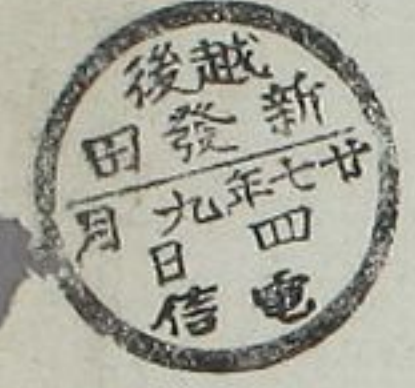 越後
新發田
廿七年九月
四日
電信